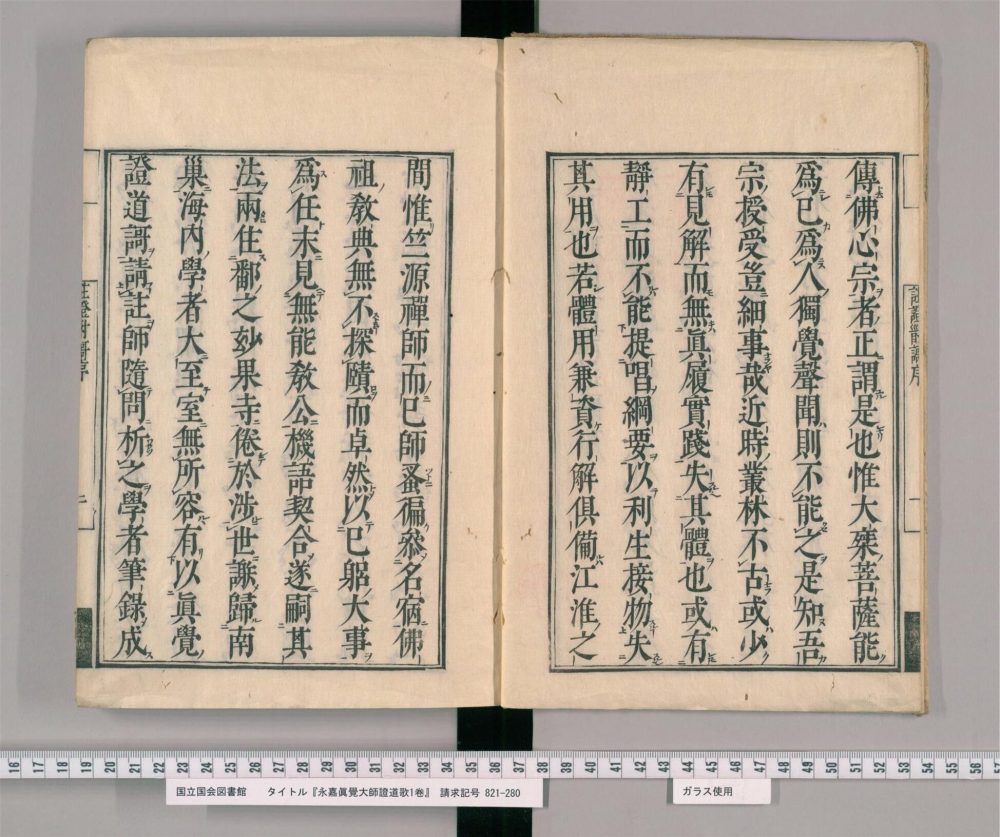 傳佛心宗者正謂是也惟大乗菩薩能
爲已爲人獨覺聲聞則不能之是知吾
宗授受豈細事哉近時叢林不古或少
有見解而無眞履實踐失其體也或有
靜工而不能提唱綱要以利生接物失
其用也若體用兼資行解俱備江淮之
間惟竺源禪師而已師蚤徧叅名宿佛
祖教典無不探賾而卓然以已躬大事
爲任末見無能教公機語契合遂嗣其
法兩住鄱之玅果寺倦於涉世謝歸南
巢海内學者大至室無所容有以眞覺
證道謌請註師隨問析之學者筆録成
16 17 18 19 20 21 22 23 24 25 26 27 28 29 30 31 32 33 34 35 36 37 38 39 40 41 42 43 44 45 46 47 48 49 50 51 52 53 54 55 56 57
国立国会図書館 タイトル『永嘉眞覺大師證道歌1巻』 請求記号 821-280
ガラス使用